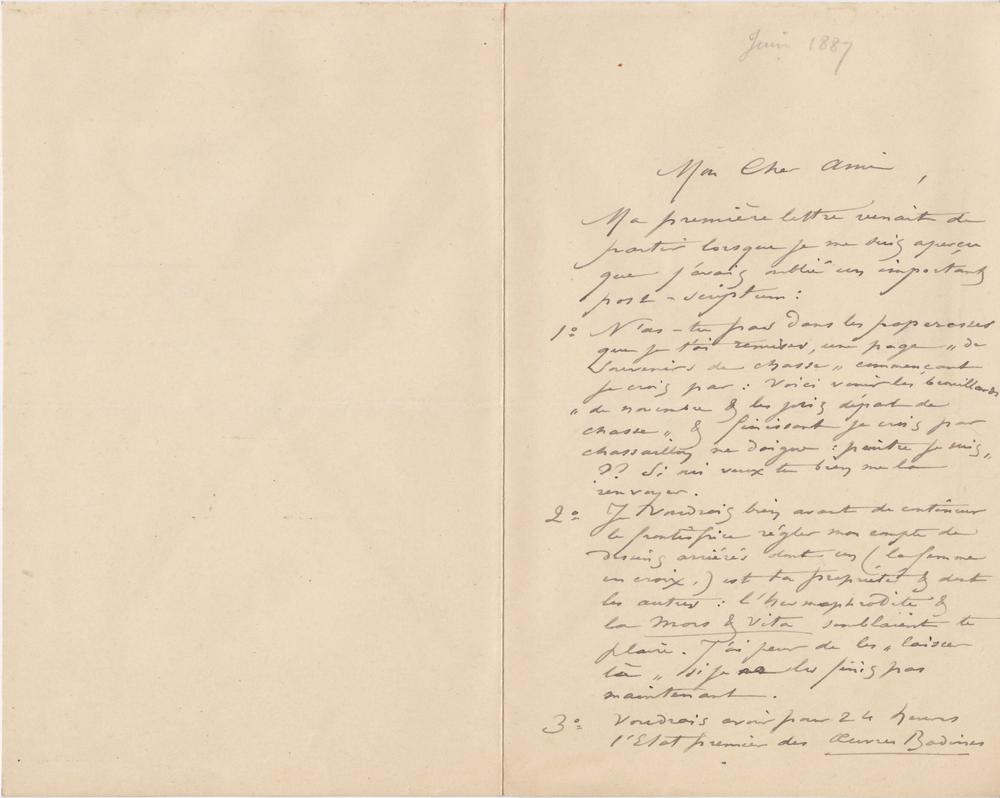 Juin 1887
Mon Cher Ami,
Ma première lettre venait de
partir lorsque je me suis aperçu
que j'avais oublié un important
post-scriptum :
1º N'as-tu pas dans les paperasses
que je t'ai remises, une page „ de
Souvenirs de chasse „ commençant
je crois par : Voici venir les brouillards
„ de novembre & les gris départ de
chasse „ & finissant je crois par
ne daigne : peintre je suis „
?? Si oui veux tu bien me la
renvoyer.
2º Je voudrais bien avant de continuer
le frontispice régler mon compte de
dessins arriérés dont un (la femme
en croix,) est ta propriété & dont
les autres : l'hermaphrodite &
la Mors & Vita semblaient te
plaire. J'ai peur de les „ laisser
là „ si je ne les finis pas
maintenant.
3º Voudrais avoir pour 24 heures
l'Etat premier des Œuvres Badines